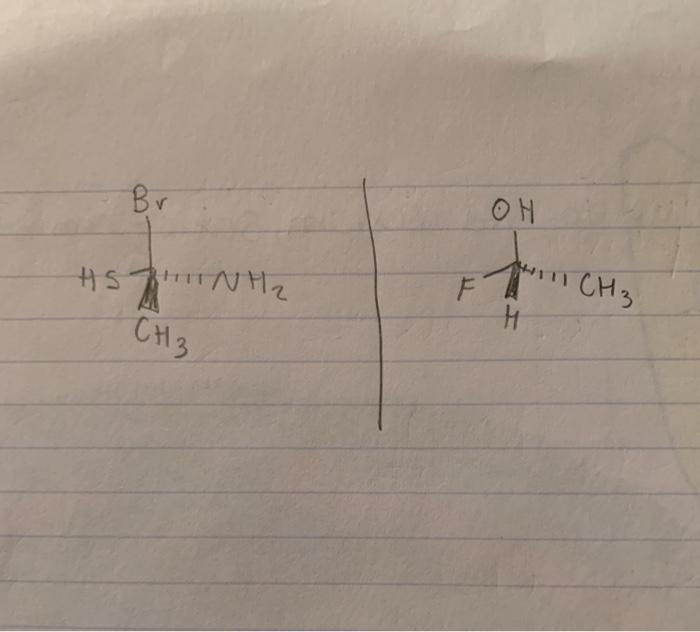 Br
HS NH2
CH3
OH
F CH3
H